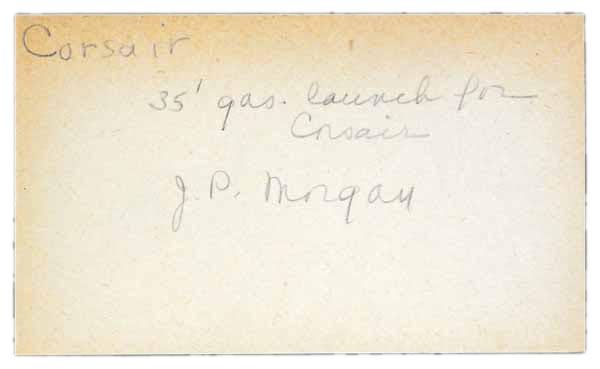 Corsair
35' gas. launch for
Corsair
J. P. Morgan